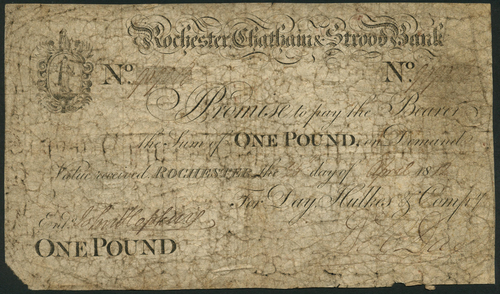 Rochester Chatham & Strood Bank
No. No.
I Promise to pay the Bearer
the Sum of ONE POUND, on Demand
Value received ROCHESTER the day of April 1812
For Day, Hulkes & Compy
Entd
ONE POUND